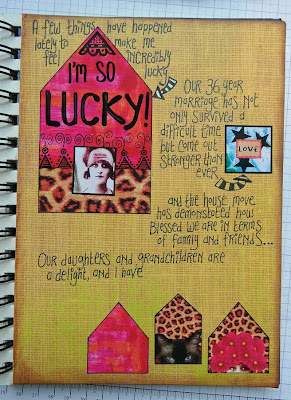 A few things have happened
lately to make me
feel incredibly
lucky
I'M SO
LUCKY!
Our 36 year
marriage has not
only survived a
difficult time
but come out
stronger than
ever
LOVE
and the house move
has demonstated how
Blessed we are in terms
of family and friends...
Our daughters and grandchildren are
a delight, and I have